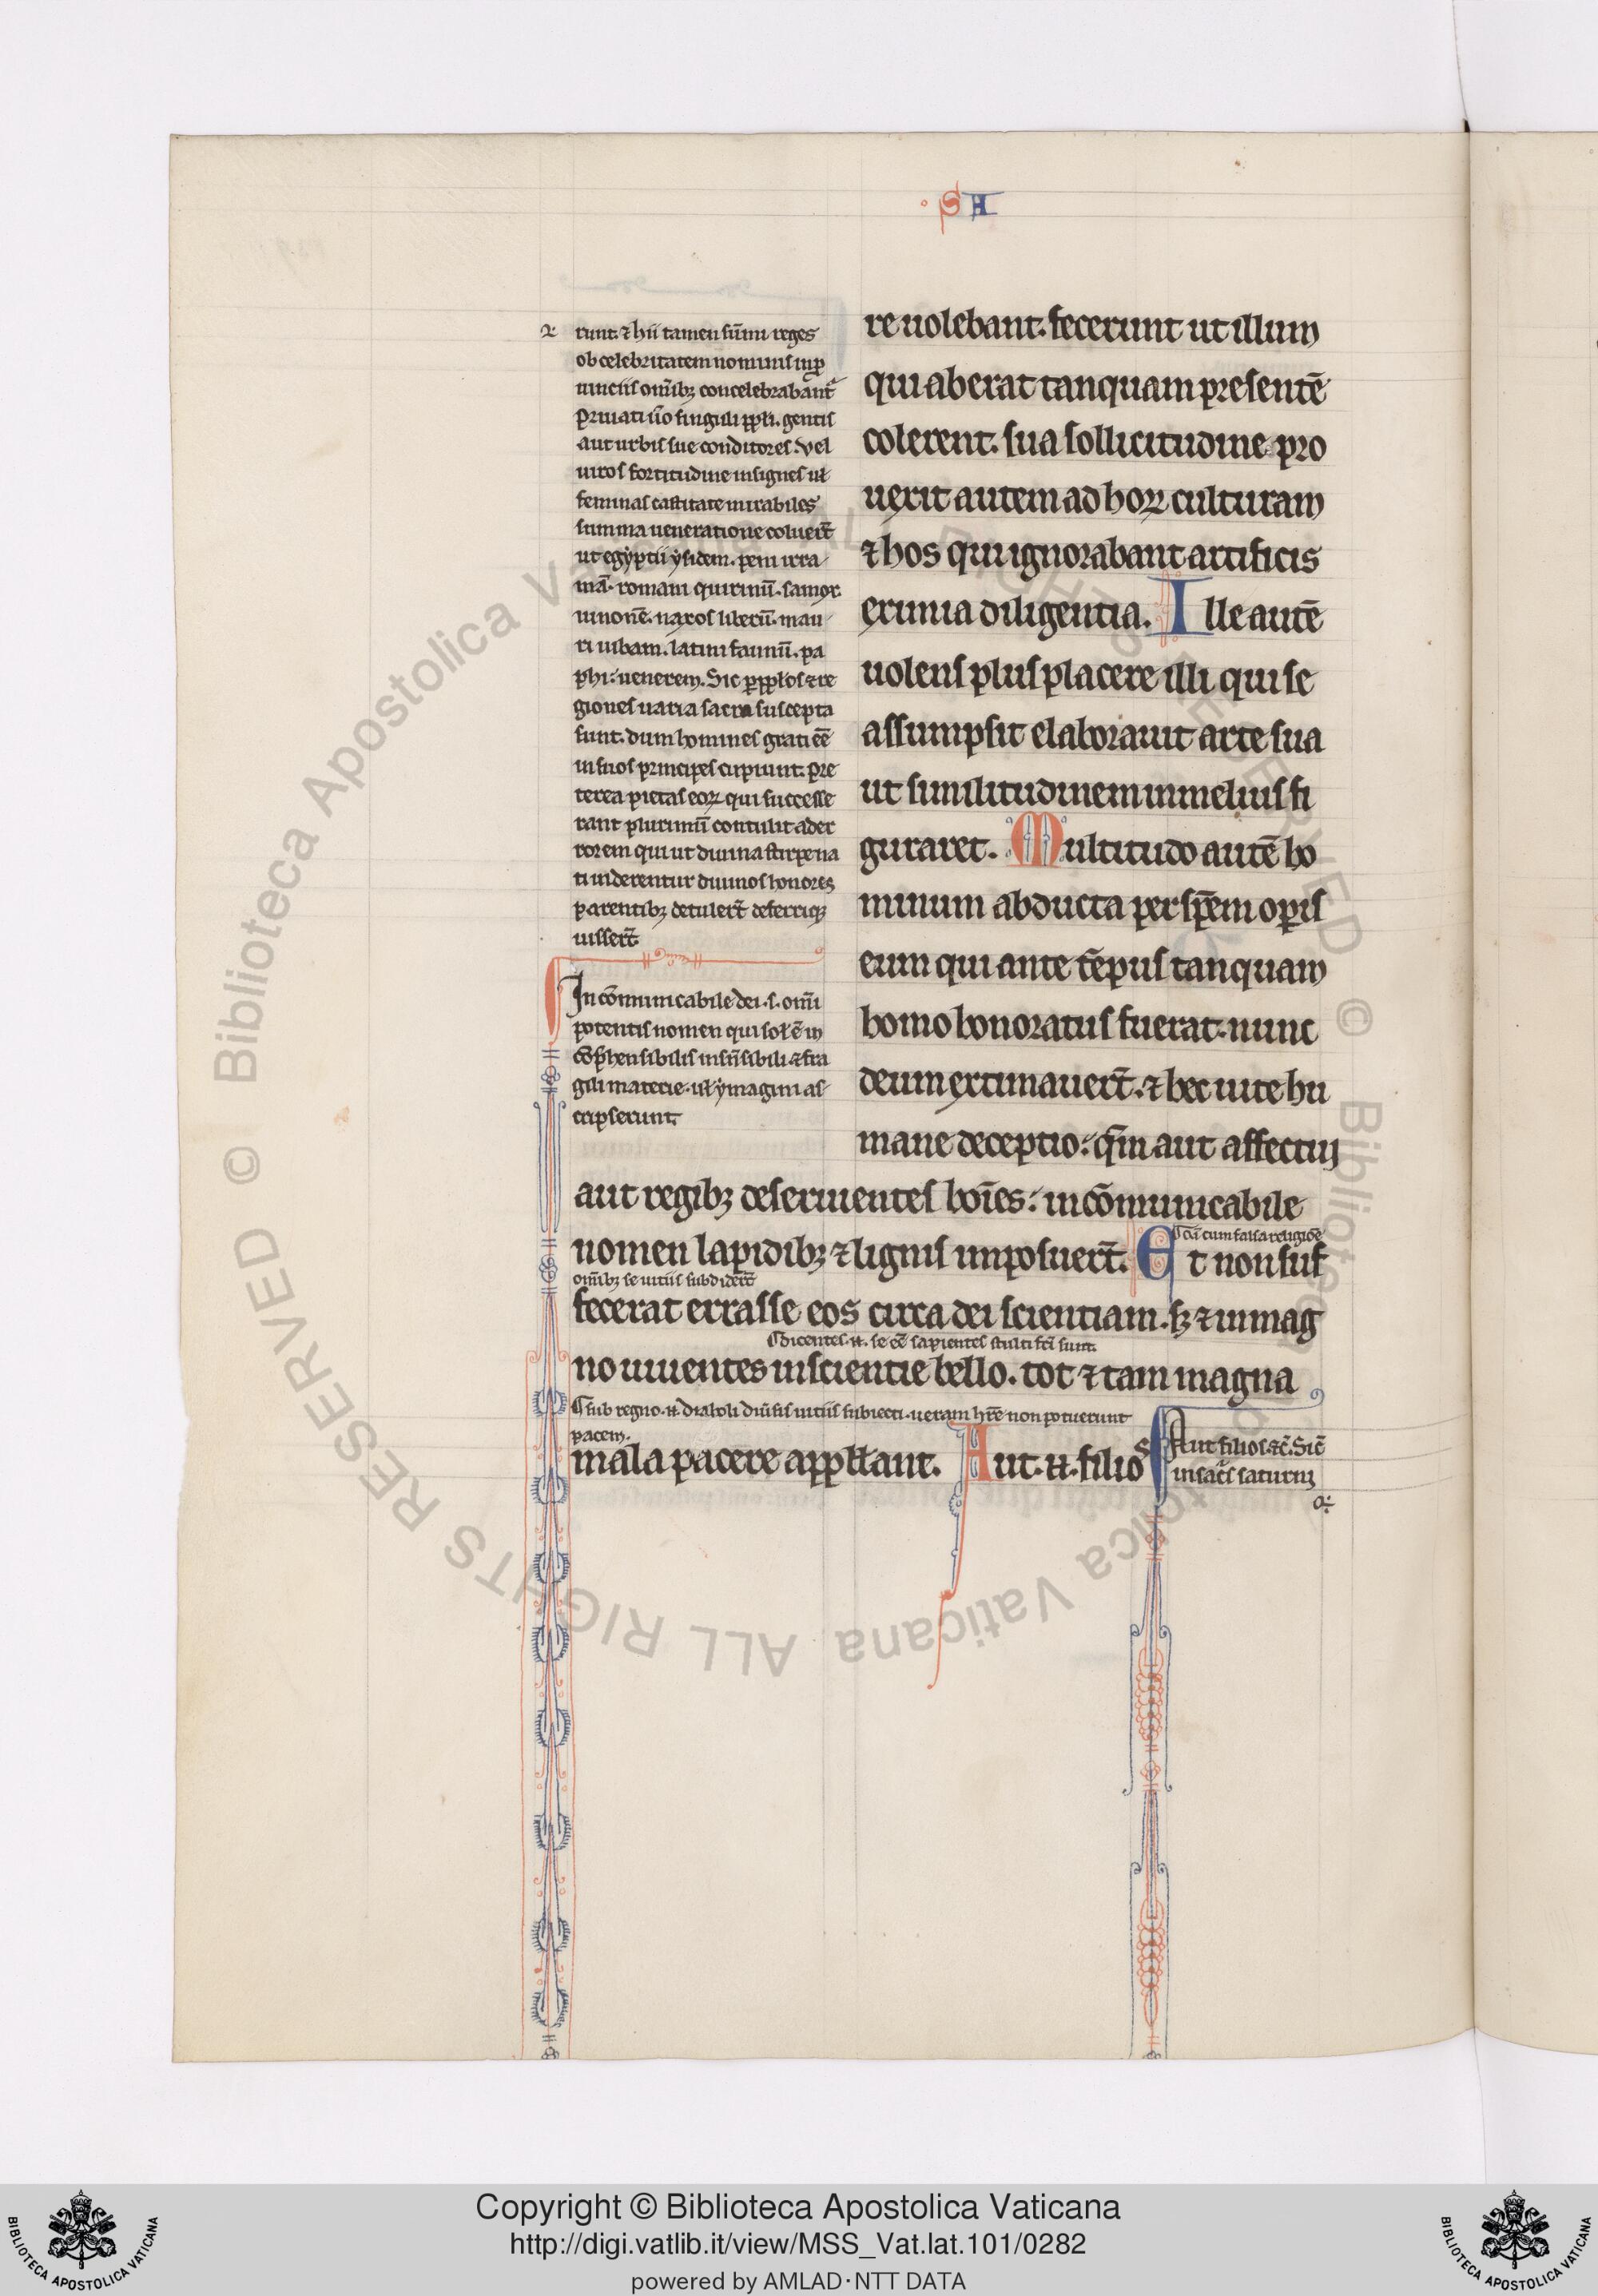 SA
runt. ⁊ hii tamen sūmi reges
ob celebritatem nominis in ꝓ
uinciis om̄ibꝫ concelebrabant᷑
priuati ū̄o singuli pp̄li. gentis
aut urbis sue conditores. Vel
uiros fortitudine insignes uł
feminas castitate mirabiles
summa ueneratione coluer̄t
ut egyptii ysidem.
mā. romani quirinū.
iunonē. naxos liberū. mau
ri iubam. latini faunū. pa
phi: uenerem. Sic ꝑ pp̄los ⁊ re
giones uaria sacra suscepta
sunt. dum homines grati eē̄
in suos principes cupiunt. pre
terea pietas eoꝝ qui successe
rant plurimū contulit ad er
rorem qui ut diuina stirpe na
ti uiderentur diuinos honores
parentibꝫ detuler̄t deferriqꝫ
iusser̄t.
In cōmunicabile dei .s. om̄i
potentis nomen qui sol᷑ ē in
cōp̄hensibilis insēsibili ⁊ fra
gili materie. uł ymagini as
cripserunt
re uolebant. fecerunt ut illum
qui aberat tanquam presentē
colerent. sua sollicitudine pro
uexit autem ad hoꝝ culturam
⁊ hos qui ignorabant artificis
eximia diligentia. Ille autē
uolens plus placere illi qui se
assumpsit elaborauit arte sua
ut similitudinem in melius fi
guraret. Multitudo autē ho
minum abducta per sp̄em operis
eum qui ante tēpus tanquam
homo honoratus fuerat. nunc
deum extimauer̄t. ⁊ hec uite hu
mane deceptio: qm̄ aut affectui
aut regibꝫ deseruientes hoīes: incōmunicabile
nomen lapidibꝫ ⁊ lignis imposuer̄t. Et non suf
cum falsa religiōe
om̄ibꝫ se uitiis subdider̄t
fecerat errasse eos circa dei scientiam. sꝫ ⁊ in mag
dicentes .n. se eē̄ sapientes stulti fc̄i sunt.
no uiuentes inscientie bello. tot ⁊ tam magna
sub regno .n. diaboli diu͛sis uitiis subiecti. ueram hr̄e non potuerunt
pacem.
mala pacere appłłant. Aut .n. filios
Aut filios ⁊c̄. Sic̄
in sac͛s saturni
Copyright © Biblioteca Apostolica Vaticana
http://digi.vatlib.it/view/MSS_Vat.lat.101/0282
powered by AMLAD·NTT DATA
BIBLIOTECA APOSTOLICA VATICANA
BIBLIOTECA APOSTOLICA VATICANA
© Biblioteca Apostolica Vaticana ALL RIGHTS RESERVED
© Biblioteca Apostolica Vaticana ALL RIGHTS RESERVED